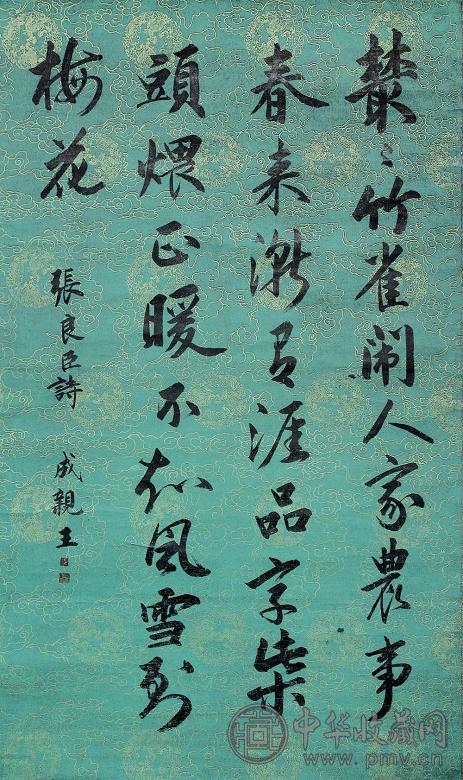 叢〻竹雀闹人家農事
春来漸有涯品字柴
頭煨正暖不知風雪到
梅花
張良臣詩 成親王
中华收藏网
www.pmv.cn